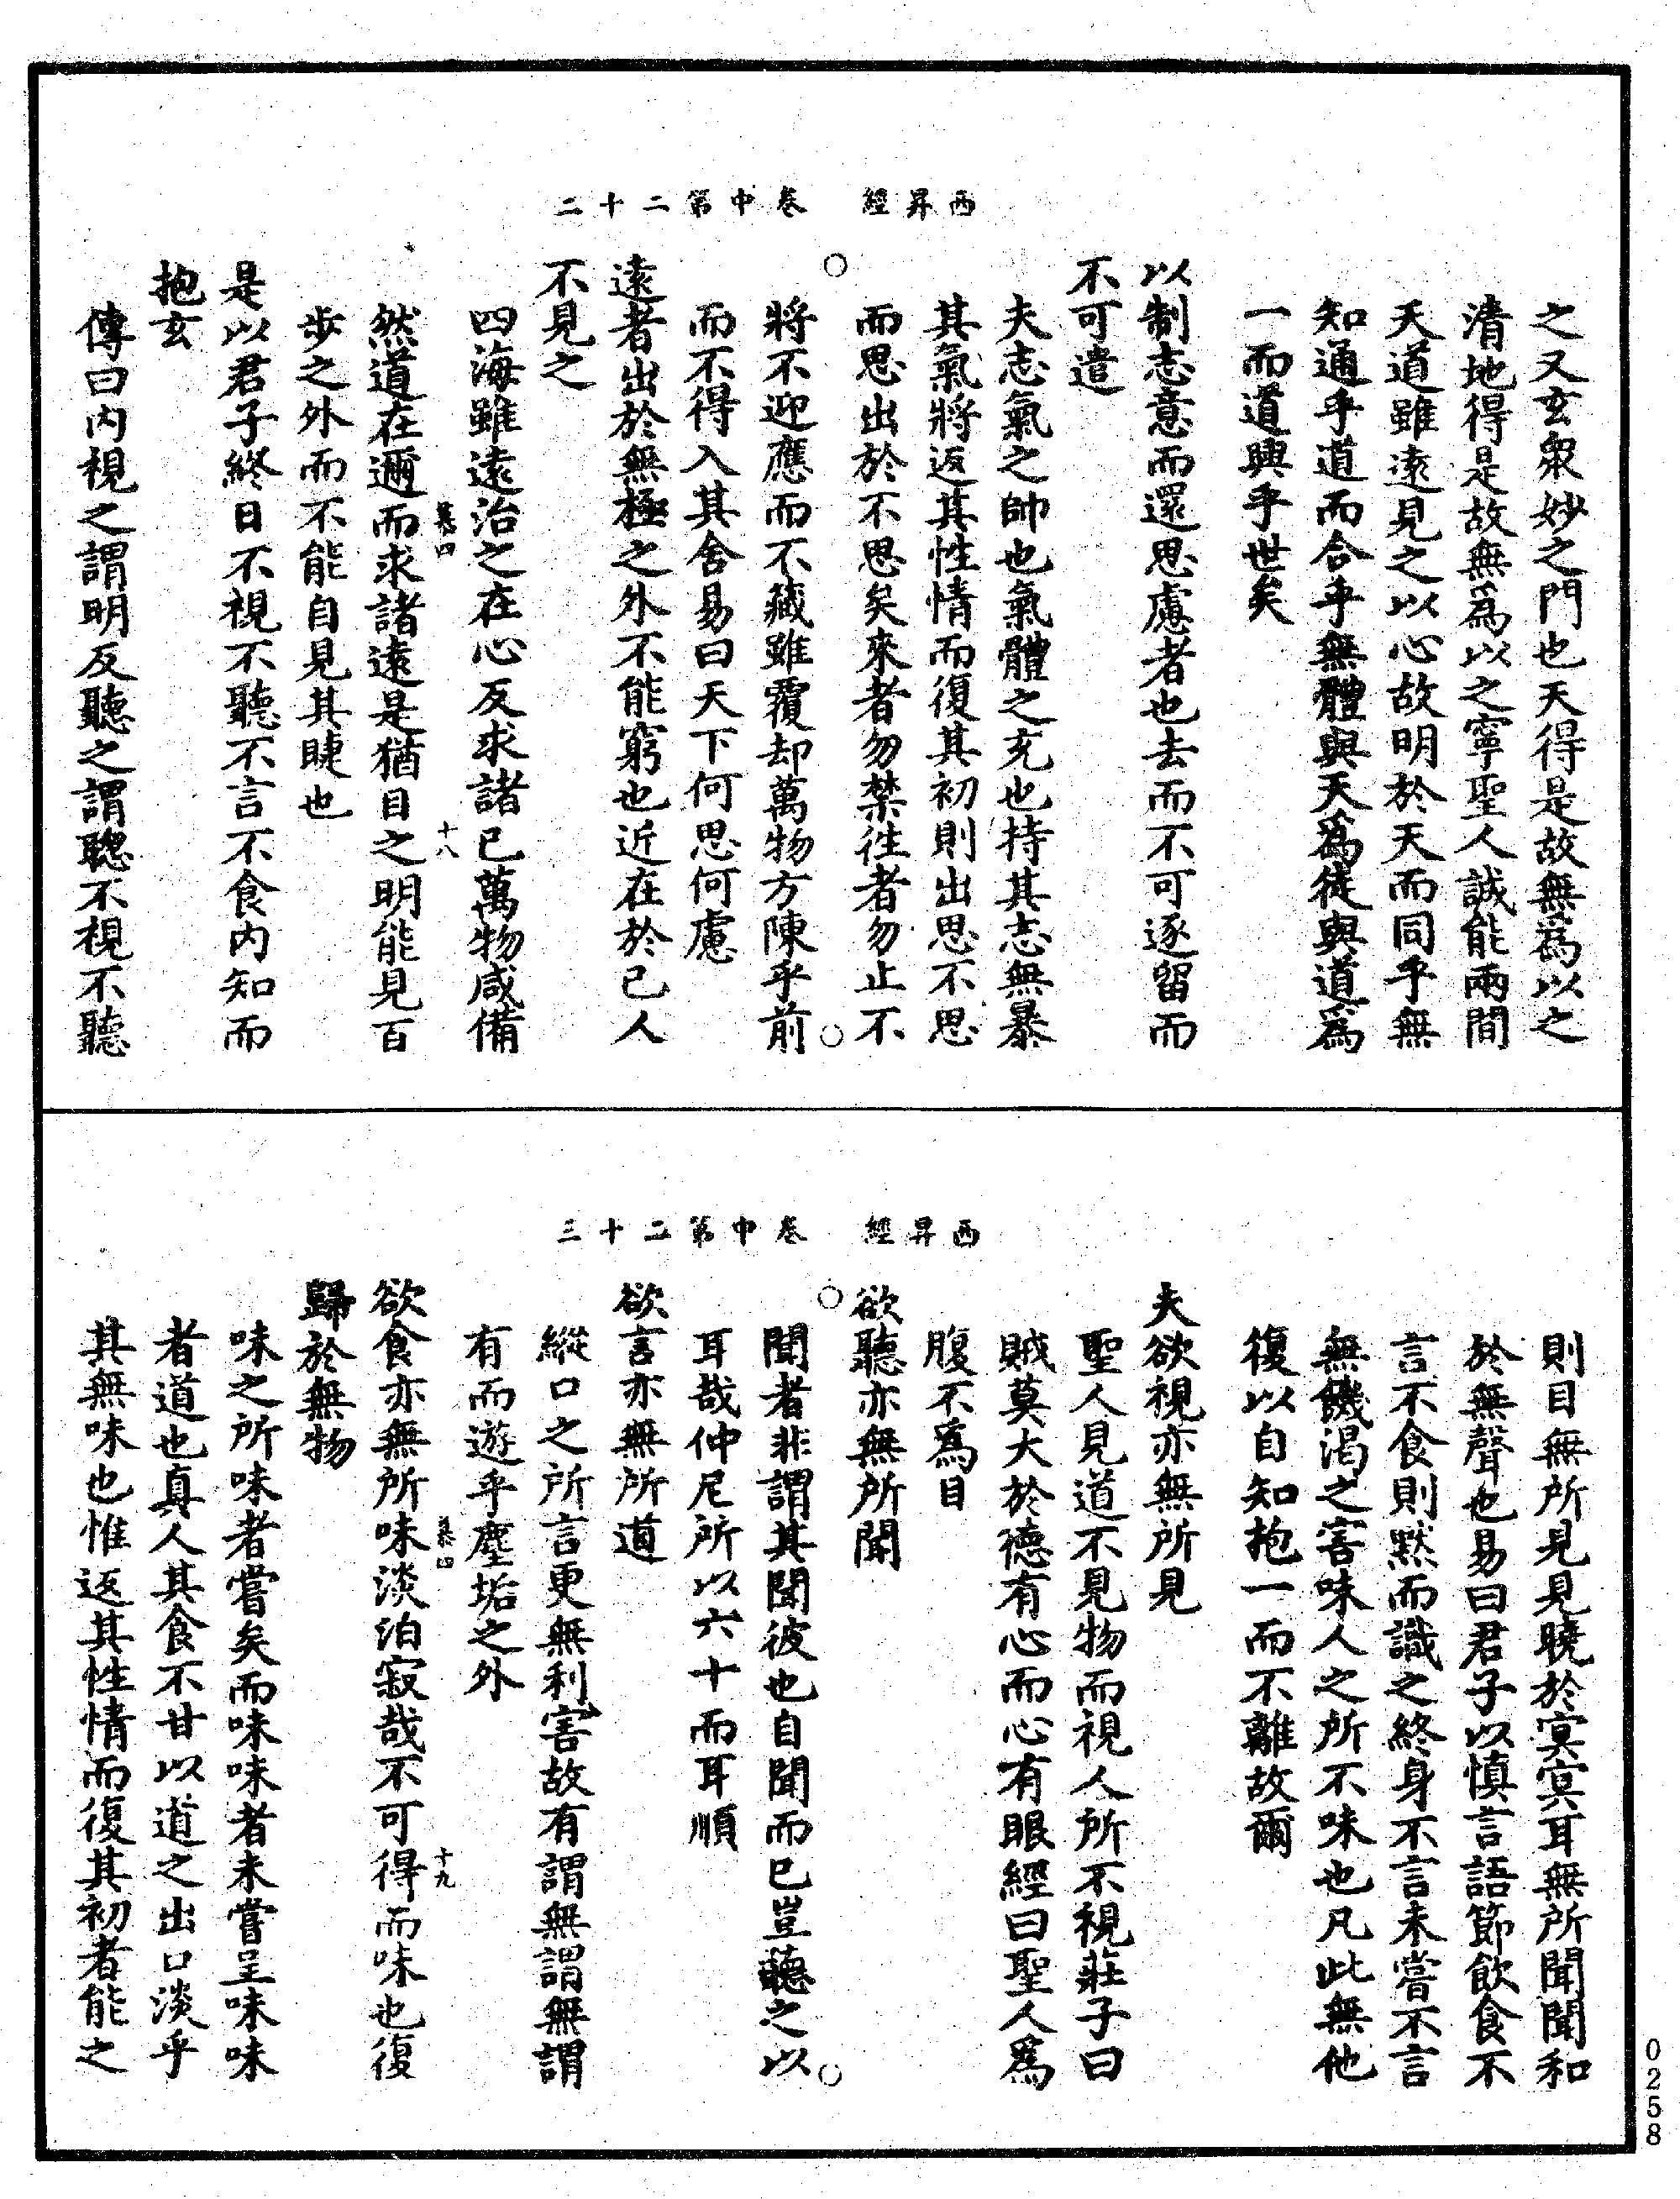 西昇經　卷中第二十二
之又玄衆妙之門也天得是故無爲以之
清地得是故無爲以之寧聖人誠能兩間
天道雖遠見之以心故明於天而同乎無
知通乎道而合乎無體與天爲徒與道爲
一而道興乎世矣
以制志意而還思慮者也去而不可逐留而
不可遣
夫志氣之帥也氣體之充也持其志無暴
其氣將返其性情而復其初則出思不思
而思出於不思矣來者勿禁徃者勿止不
將不迎應而不藏雖覆却萬物方陳乎前
而不得入其舍易曰天下何思何慮
遠者出於無極之外不能窮也近在於己人
不見之
四海雖遠治之在心反求諸己萬物咸備
慕四　十八
然道在邇而求諸遠是猶目之明能見百
步之外而不能自見其睫也
是以君子終日不視不聽不言不食内知而
抱玄
傳曰内視之謂明反聽之謂聰不視不聽
西昇經　卷中第二十三
則目無所見見曉於冥冥耳無所聞聞和
於無聲也易曰君子以慎言語節飲食不
言不食則黙而識之終身不言未嘗不言
無饑渴之害味人之所不味也凡此無他
復以自知抱一而不離故爾
夫欲視亦無所見
聖人見道不見物而視人所不視莊子曰
賊莫大於德有心而心有眼經曰聖人爲
腹不爲目
欲聽亦無所聞
聞者非謂其聞彼也自聞而已豈聽之以
耳哉仲尼所以六十而耳順
欲言亦無所道
縱口之所言更無利害故有謂無謂無謂
有而遊乎塵垢之外
慕四　十九
欲食亦無所味淡泊寂哉不可得而味也復
歸於無物
味之所味者嘗矣而味味者未嘗呈味味
者道也真人其食不甘以道之出口淡乎
其無味也惟返其性情而復其初者能之
0258